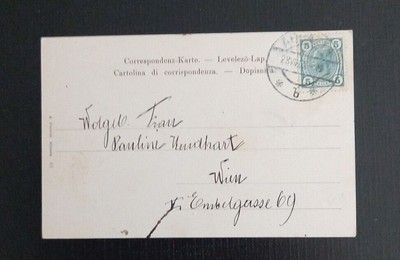 Correspondenz-Karte. — Levelező-Lap.
Cartolina di corrispondenza. — Dopisni
5 5
5 5
b
Wolgeb. Frau
Pauline Kundhart
Wien
V. Embelgasse 69